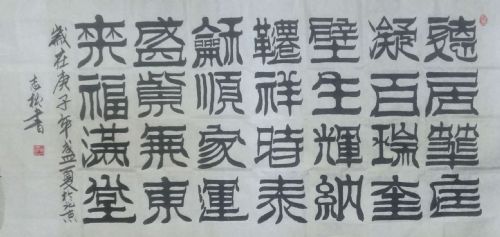 聽居華庭
凝百瑞奎
壁生輝納
韆祥時泰
龢順家運
盛紫炁東
来福滿堂
歲在庚子年盛夏於北京
志書